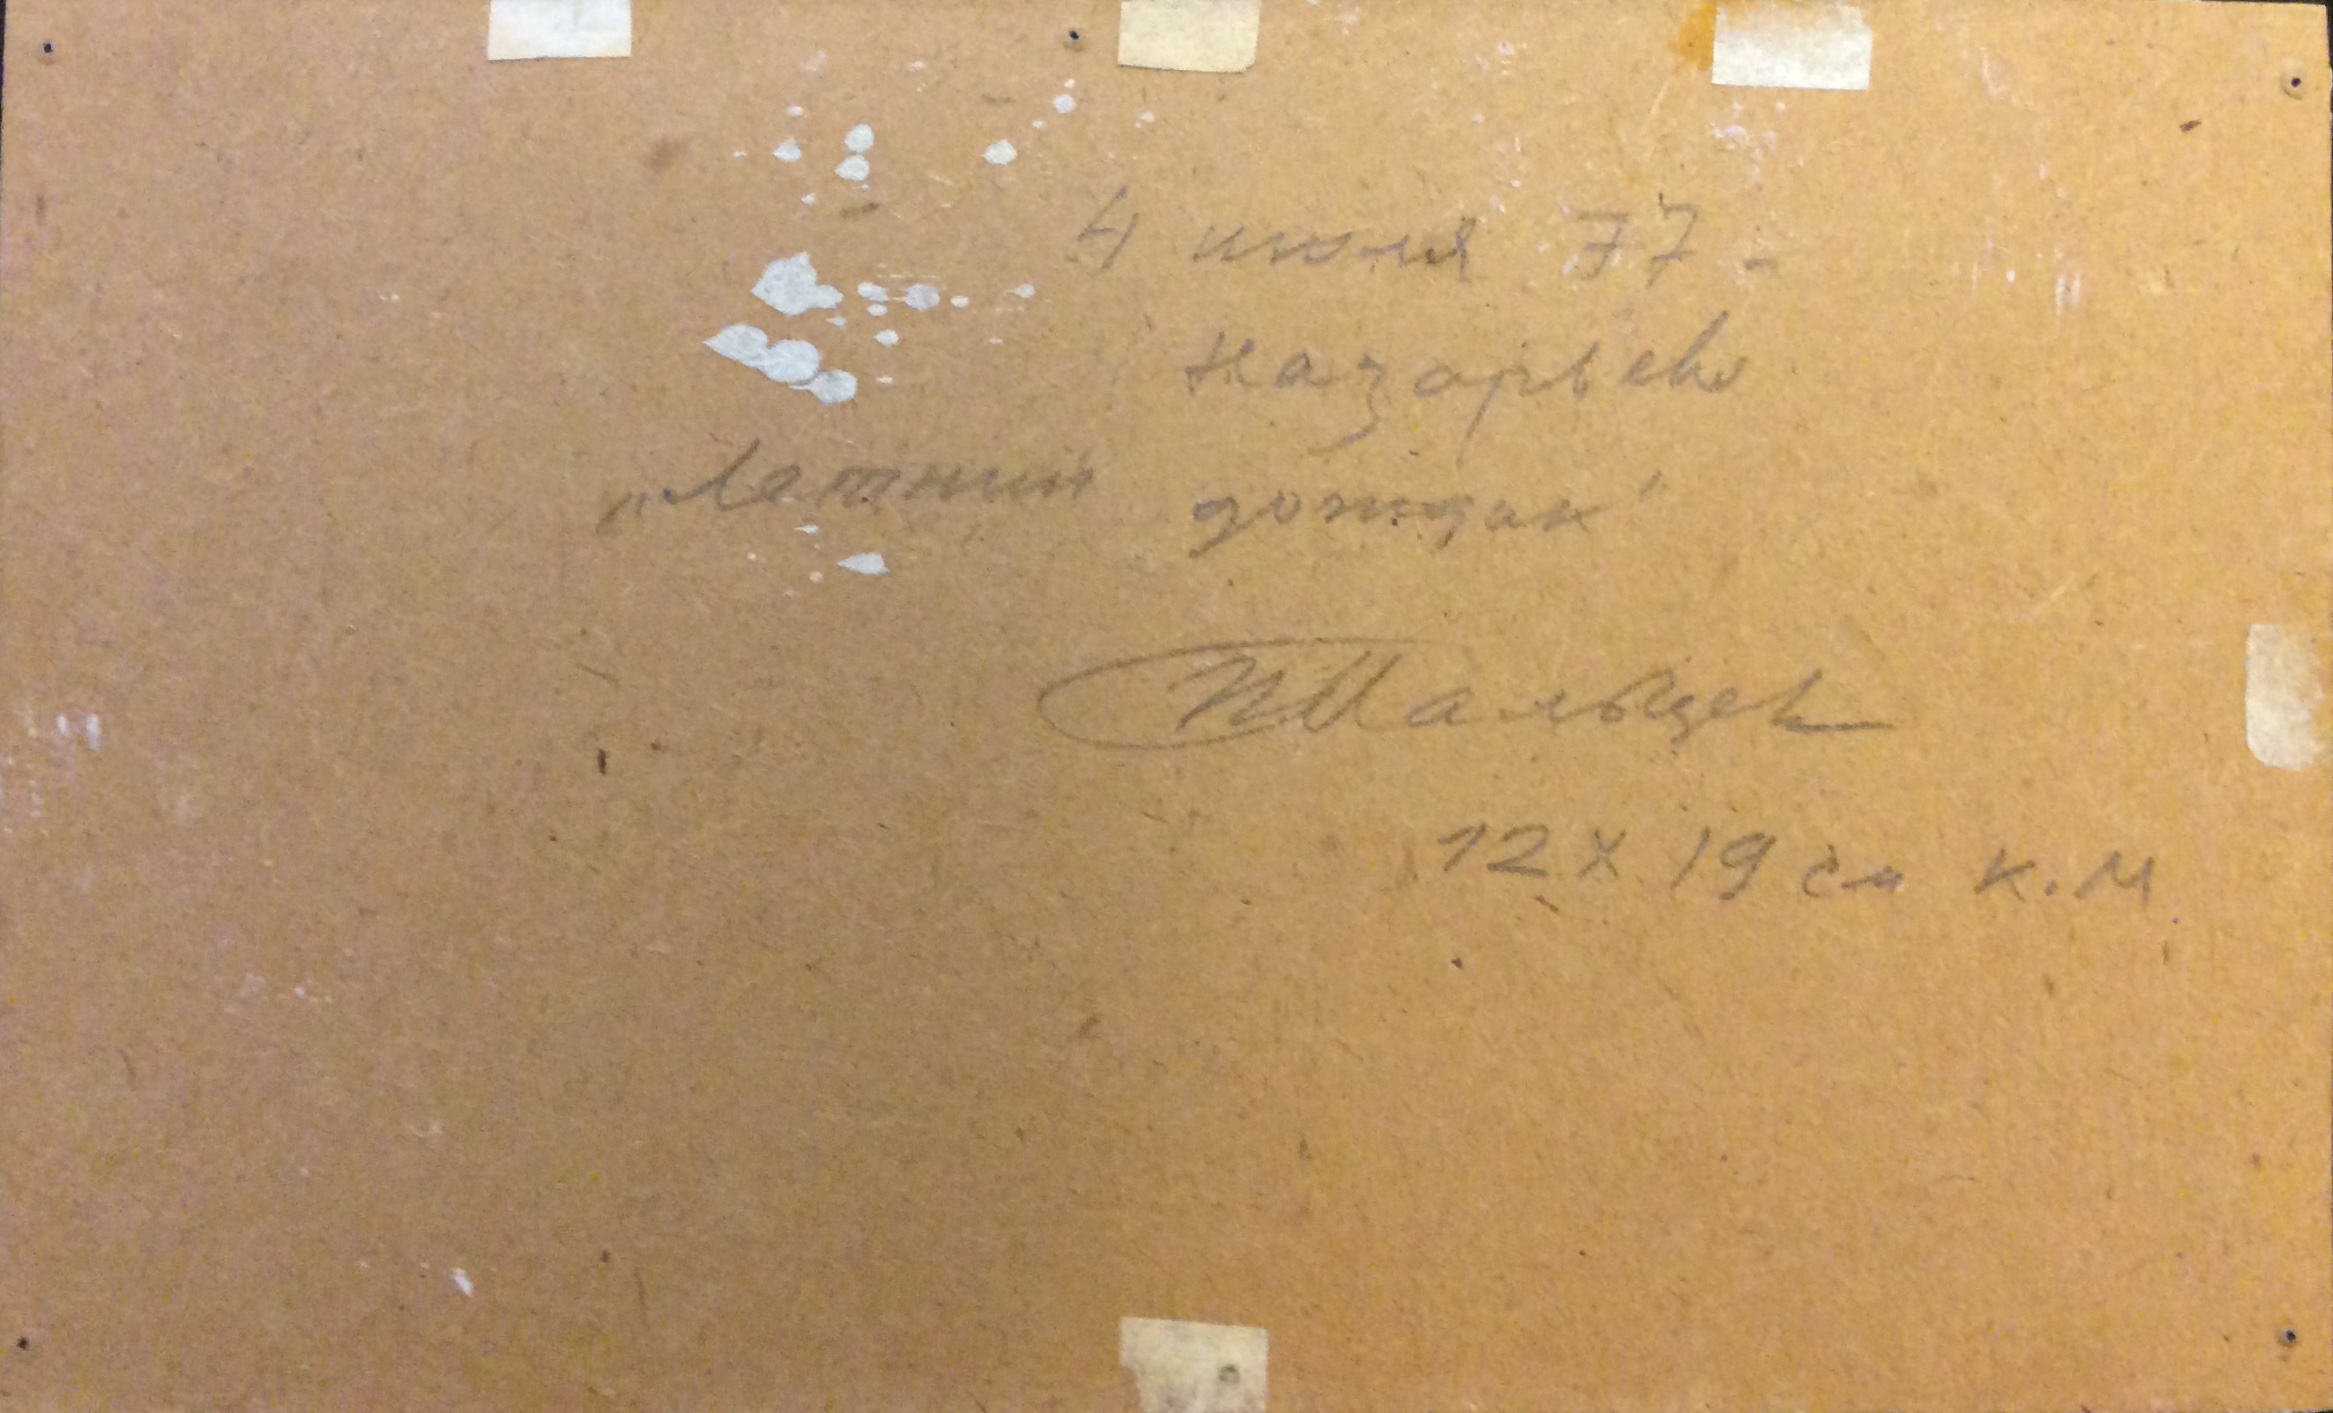 4 июля 77 -
Назарьево
„Летний дождик"
ПМальцев
12 х 19 см к.м